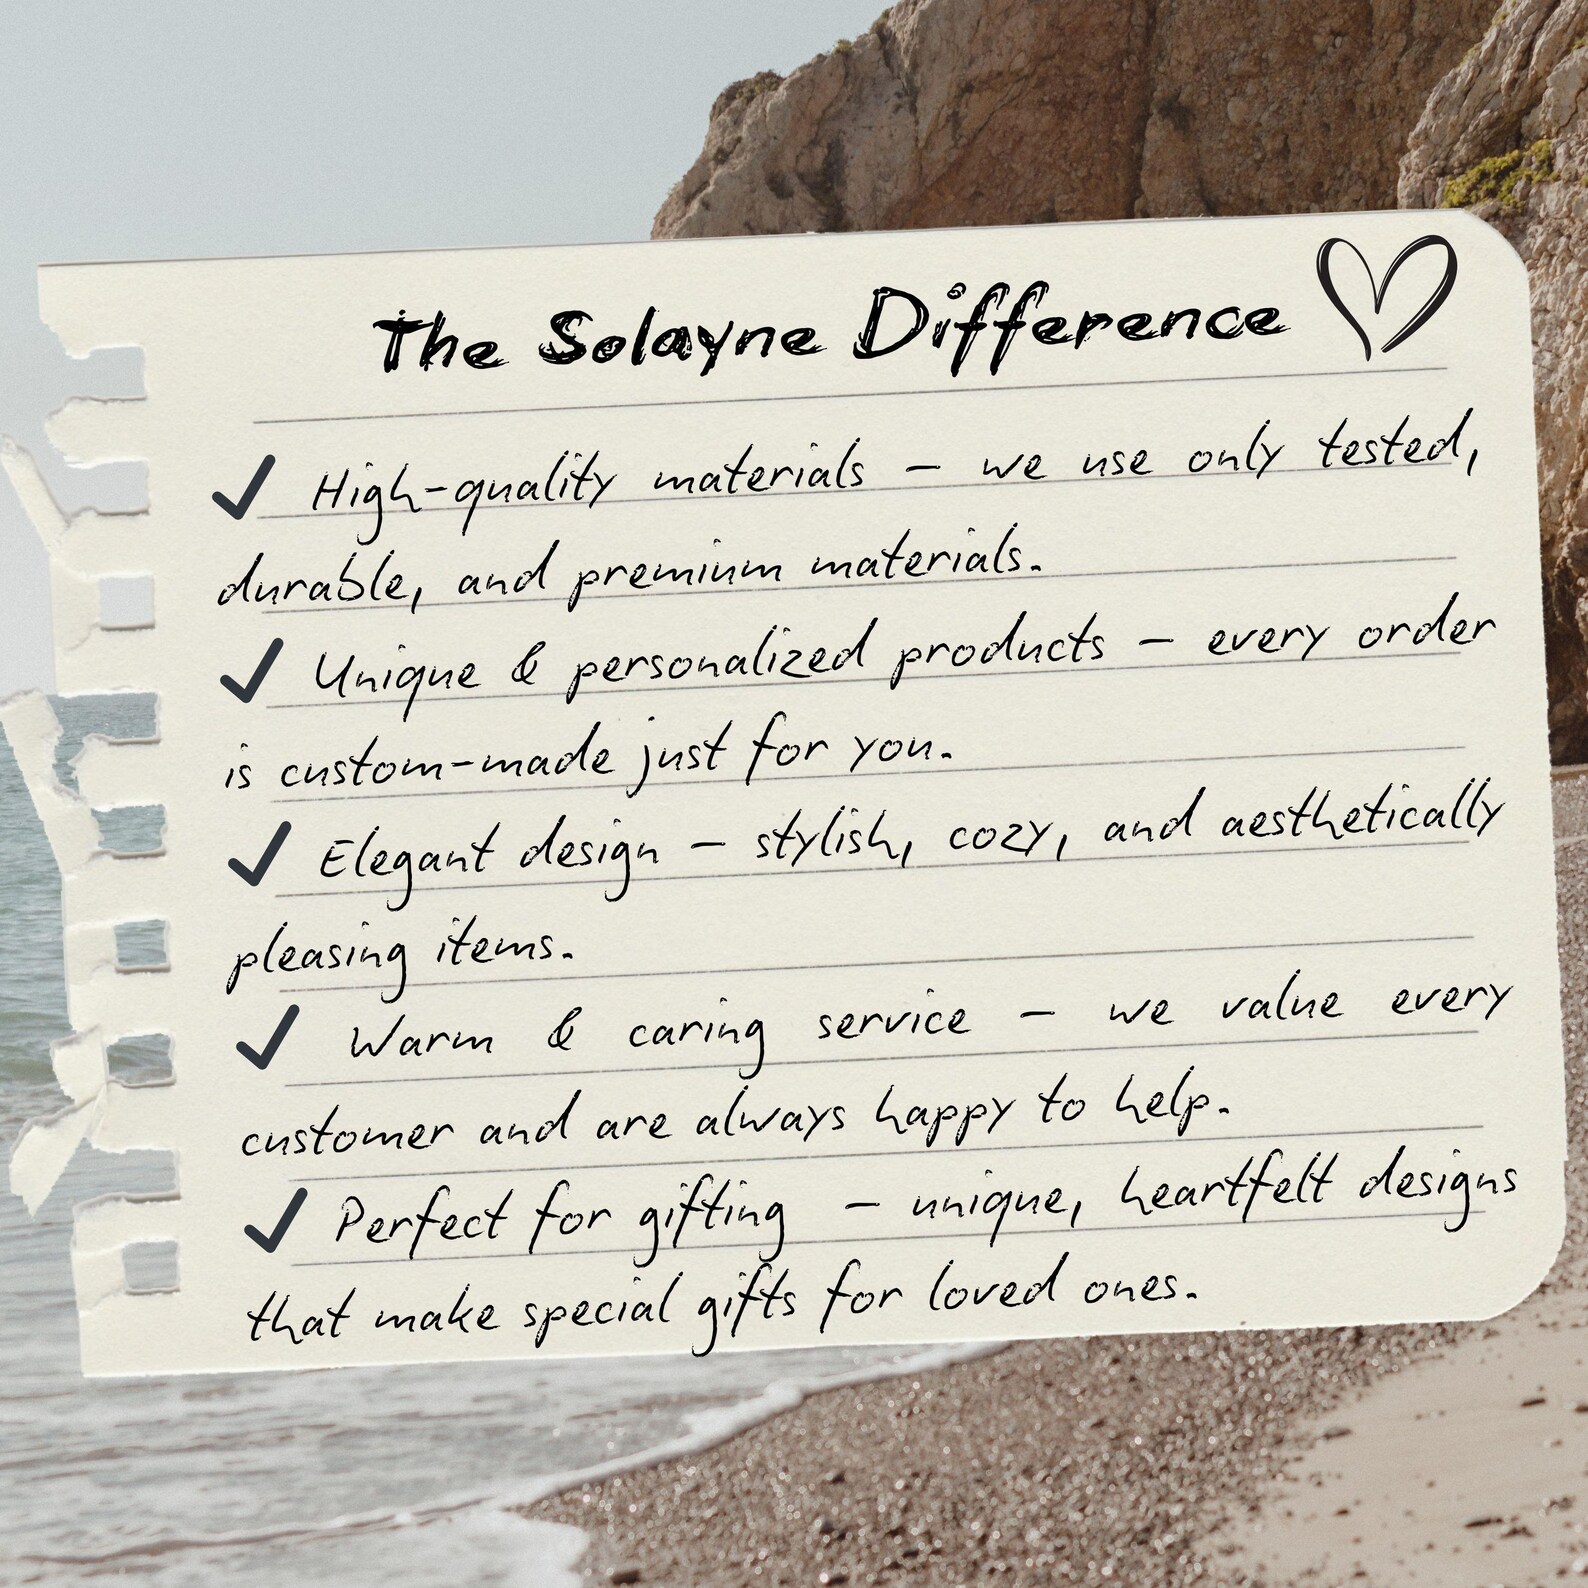 The Solayne Difference
✓ High-quality materials – we use only tested,
durable, and premium materials.
✓ Unique & personalized products – every order
is custom-made just for you.
✓ Elegant design – stylish, cozy, and aesthetically
pleasing items.
✓ Warm & caring service – we value every
customer and are always happy to help.
✓ Perfect for gifting – unique, heartfelt designs
that make special gifts for loved ones.